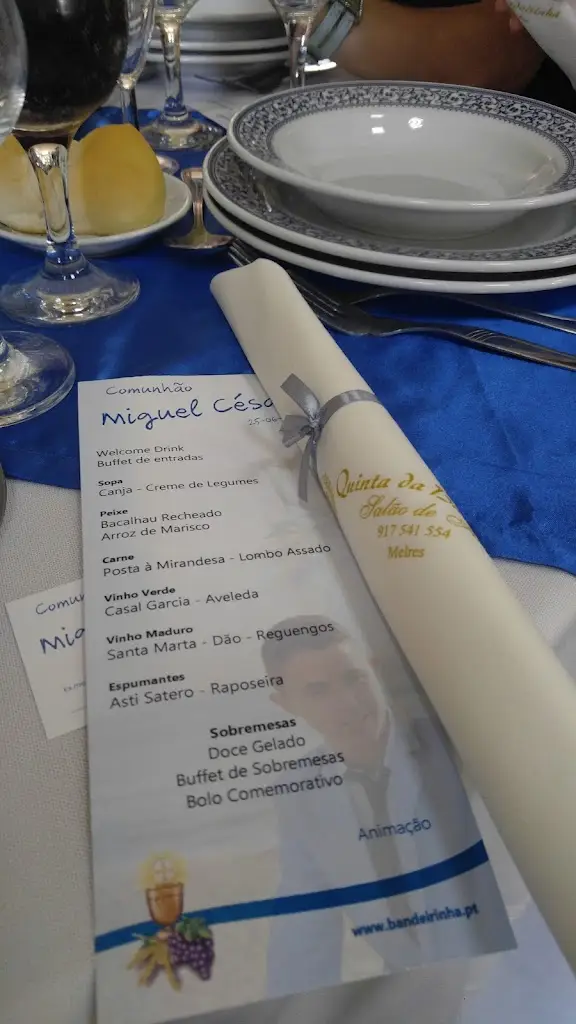 Comunhão
Miguel
Welcome Drink
Buffet de entradas
Sopa
Canja - Creme de Legumes
Peixe
Bacalhau Recheado
Arroz de Marisco
Carne
Posta à Mirandesa - Lombo Assado
Vinho Verde
Casal Garcia - Aveleda
Vinho Maduro
Santa Marta - Dão - Reguengos
Espumantes
Asti Satero - Raposeira
Sobremesas
Doce Gelado
Buffet de Sobremesas
Bolo Comemorativo
Animação
www.bandeirinha.pt
Quinta da
Salão de
917 541 554
Melres